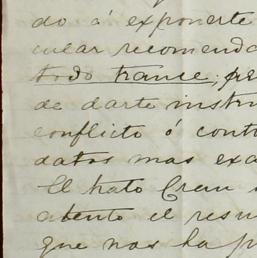 do á exponerte
cular recomenda
todo trance; pe
de darte instru
conflicto ó cont
datos mas exa
El trato Crau
atento el resu
que nos ha p